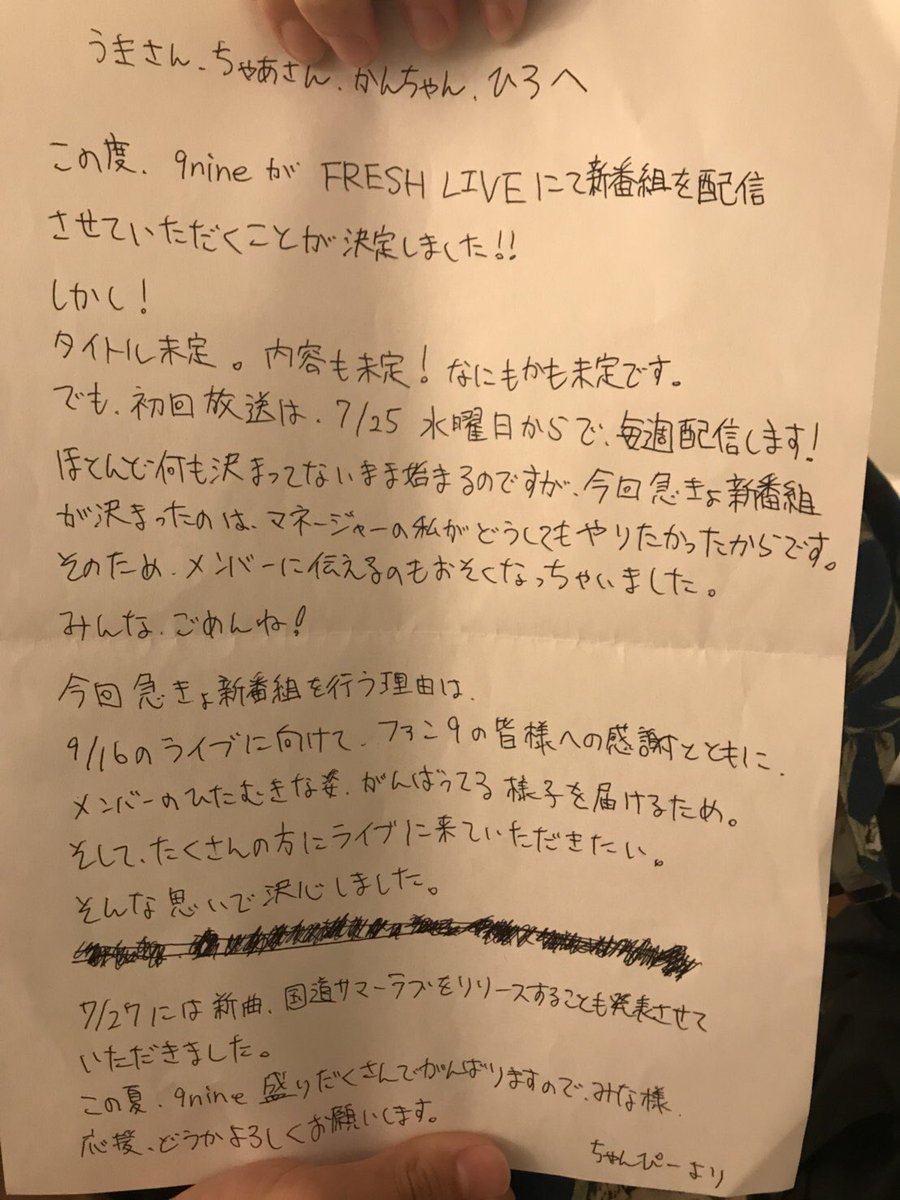 うきさん、ちゃあさん、かんちゃん、ひろへ
この度、9nineが FRESH LIVEにて新番組を配信
させていただくことが決定しました!!
しかし!
タイトル未定。内容も未定!なにもかも未定です。
でも、初回放送は、7/25 水曜日からで、毎週配信します!
ほとんど何も決まってないまま始まるのですが、今回急きょ新番組
が決まったのは、マネージャーの私がどうしてもやりたかったからです。
そのため、メンバーに伝えるのもおそくなっちゃいました。
みんな、ごめんね!
今回急きょ新番組を行う理由は、
9/16のライブに向けて、ファン9の皆様への感謝とともに、
メンバーのひたむきな姿、がんばってる様子を届けるため。
そして、たくさんの方にライブに来ていただきたい。
そんな思いで決心しました。
7/27には新曲、国道サマーラブをリリースすることも発表させて
いただきました。
この夏、9nine 盛りだくさんでがんばりますので、みな様、
応援、どうかよろしくお願いします。
ちゃんぴーより